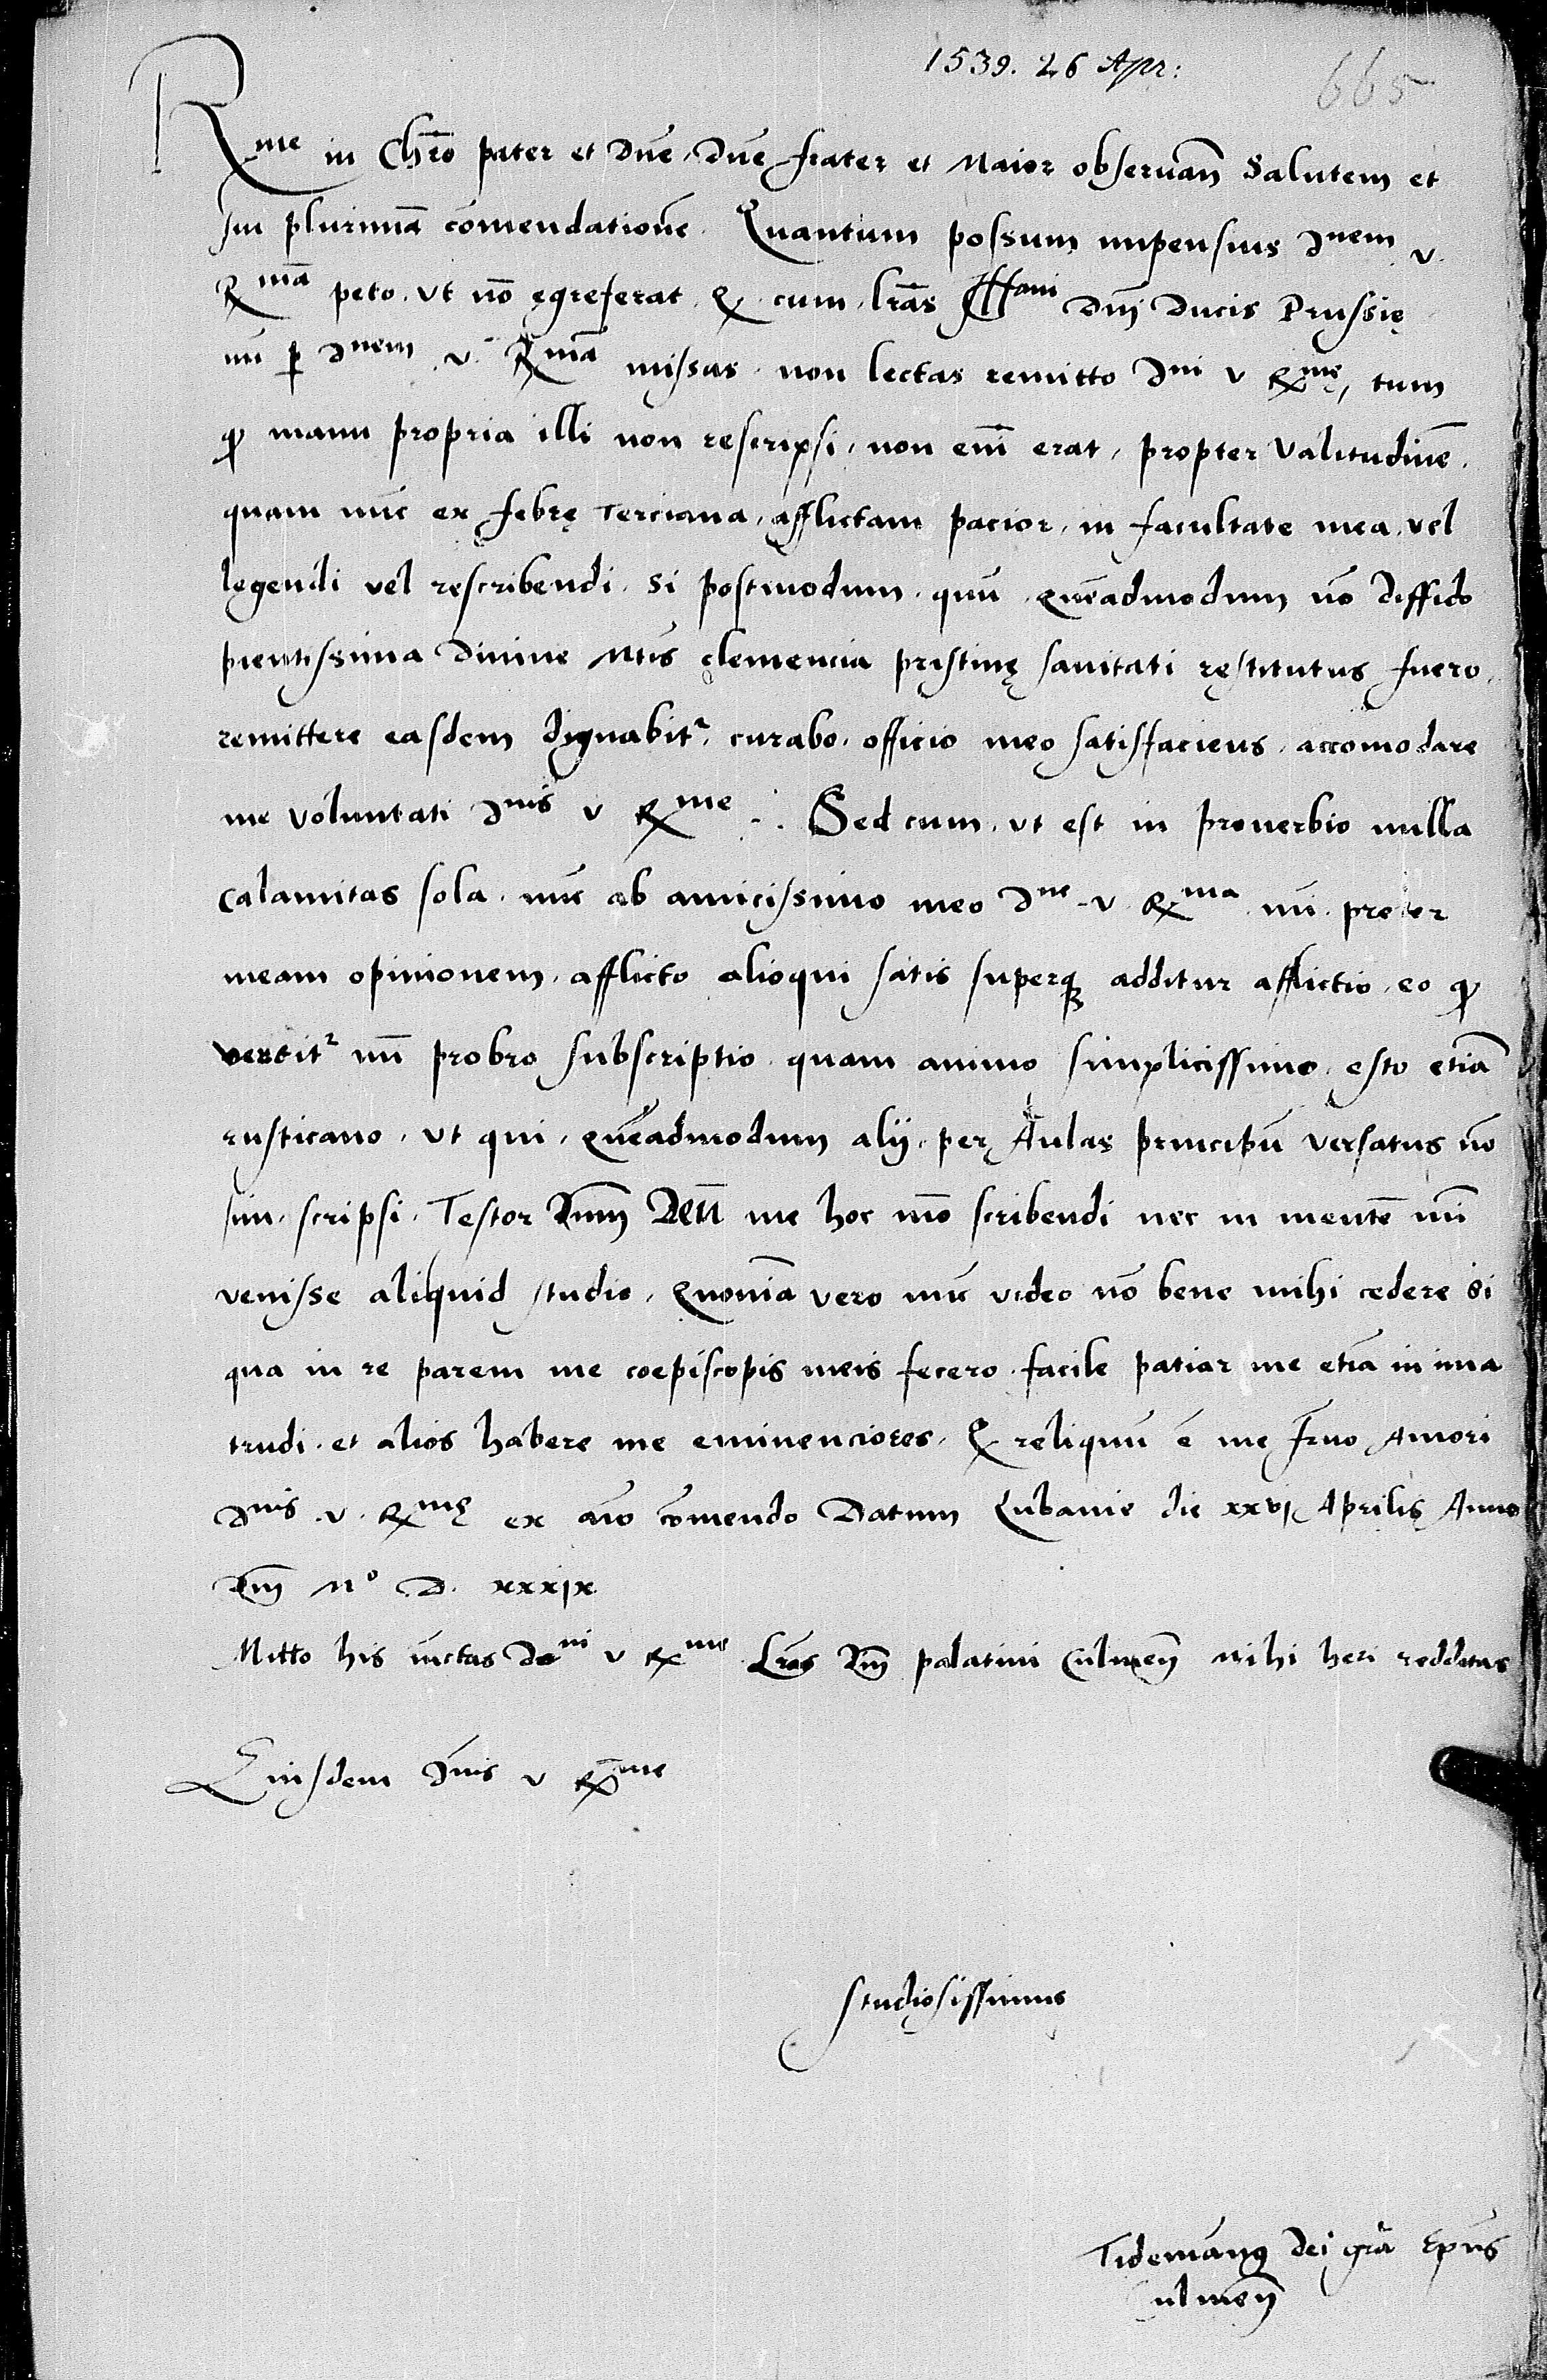 1539. 26 Apr:
665
Rme in Chro pater et dne, dne frater et Maior obseruan Salutem et
sui plurima comendatione. Quantum possum impensius dnem v.
Rma peto. vt no egreferat. Q cum. lras Illmi dni ducis Prussię
mi p dnem. v. Rma missas. non lectas remitto dni v Rmę, tum
q manu propria illi non rescripsi, non eni erat, propter valitudine.
quam nuc ex febre terciana, afflictam pacior, in facultate mea. vel
legendi vel rescribendi. Si postmodum. quu. queadmodum no diffido
pientissima diuine Mtis clemencia pristinę sanitati restitutus fuero.
remittere easdem dignabitr, curabo. officio meo satisfaciens. accomodare
me voluntati dnis v Rme. Sed cum. vt est in prouerbio nulla
calamitas sola. nuc ab amicissimo meo dne. v. Rma. mi. preter
meam opinionem. afflicto alioqui satis superq additur afflictio. eo q
vertitr mi probro subscriptio quam animo simplicissimo. esto etia
rusticano. vt qui. queadmodum alij. per Aulas principu versatus no
sim. scripsi. Testor dnm Deu me hoc mo scribendi nec in mente mi
venisse aliquid studio. Quonia vero nuc video no bene mihi cedere si
qua in re parem me coepiscopis meis fecero. facile patiar me etia in ima
trudi. et alios habere me eminenciores. Q reliquu e me fruo Amori
dnis. v. Rmę ex aio comendo Datum Lubauie die xxvj Aprilis Anno
dni Mo D. xxxjx.
Mitto his iuctas dni v Rme Lras dni palatini Culmen mihi heri redditas
Eiusdem dnis v Rme
studiosissimus
Tidemanus dei gra Epus
Culmen